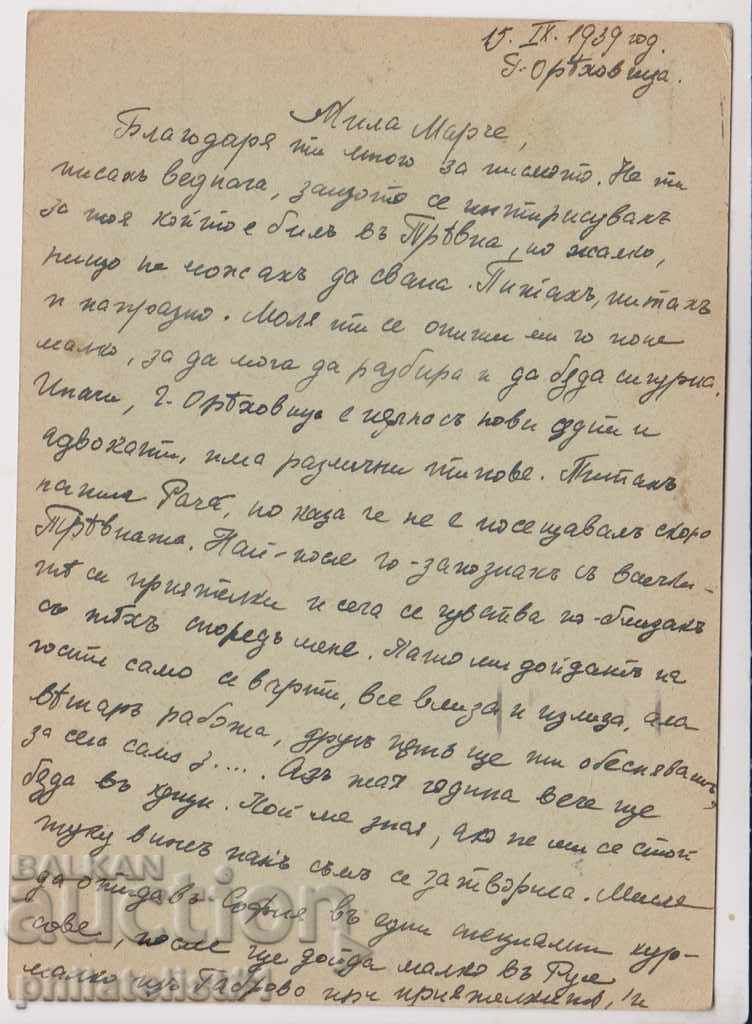 15. IX. 1939 год.
Г. Орѣховица.
Мила Марче,
Благодаря ти много за писмото. Не ти
писахъ веднага, защото се интирисувахъ
за тоя който е билъ въ Трѣвна, но жалко,
нищо не можахъ да свана. Питахъ, питахъ
и напразно. Моля ти се опиши ми го поне
малко, за да мога да разбира и да бѫда сигурна.
Иначи, Г. Орѣховица е пълна съ нови и
адвокати, има различни типове. Питахъ
но каза че не е посещавалъ скоро
Трѣвната. Най-после го-запознахъ съ всички-
тѣ си приятелки и сега се чувства по-близакъ
съ тѣхъ споредъ мене. Като ми дойдатъ на
гости само се върти, все влиза и излиза, ала
вѣтаръ работа, другъ пѫть ще ти обеснявамъ,
за сега само з.... Азъ тая година вече ще
бѫда въ Кой ме знае, ако не ми се стои
туку вижъ пакъ съмъ се затворила. Мисля
да отида въ София въ едни специални кур-
сове, после ще дойда малко въ Русе
малко изъ Габрово при приятелкитѣ, и
BALKAN
auction
philatelic61